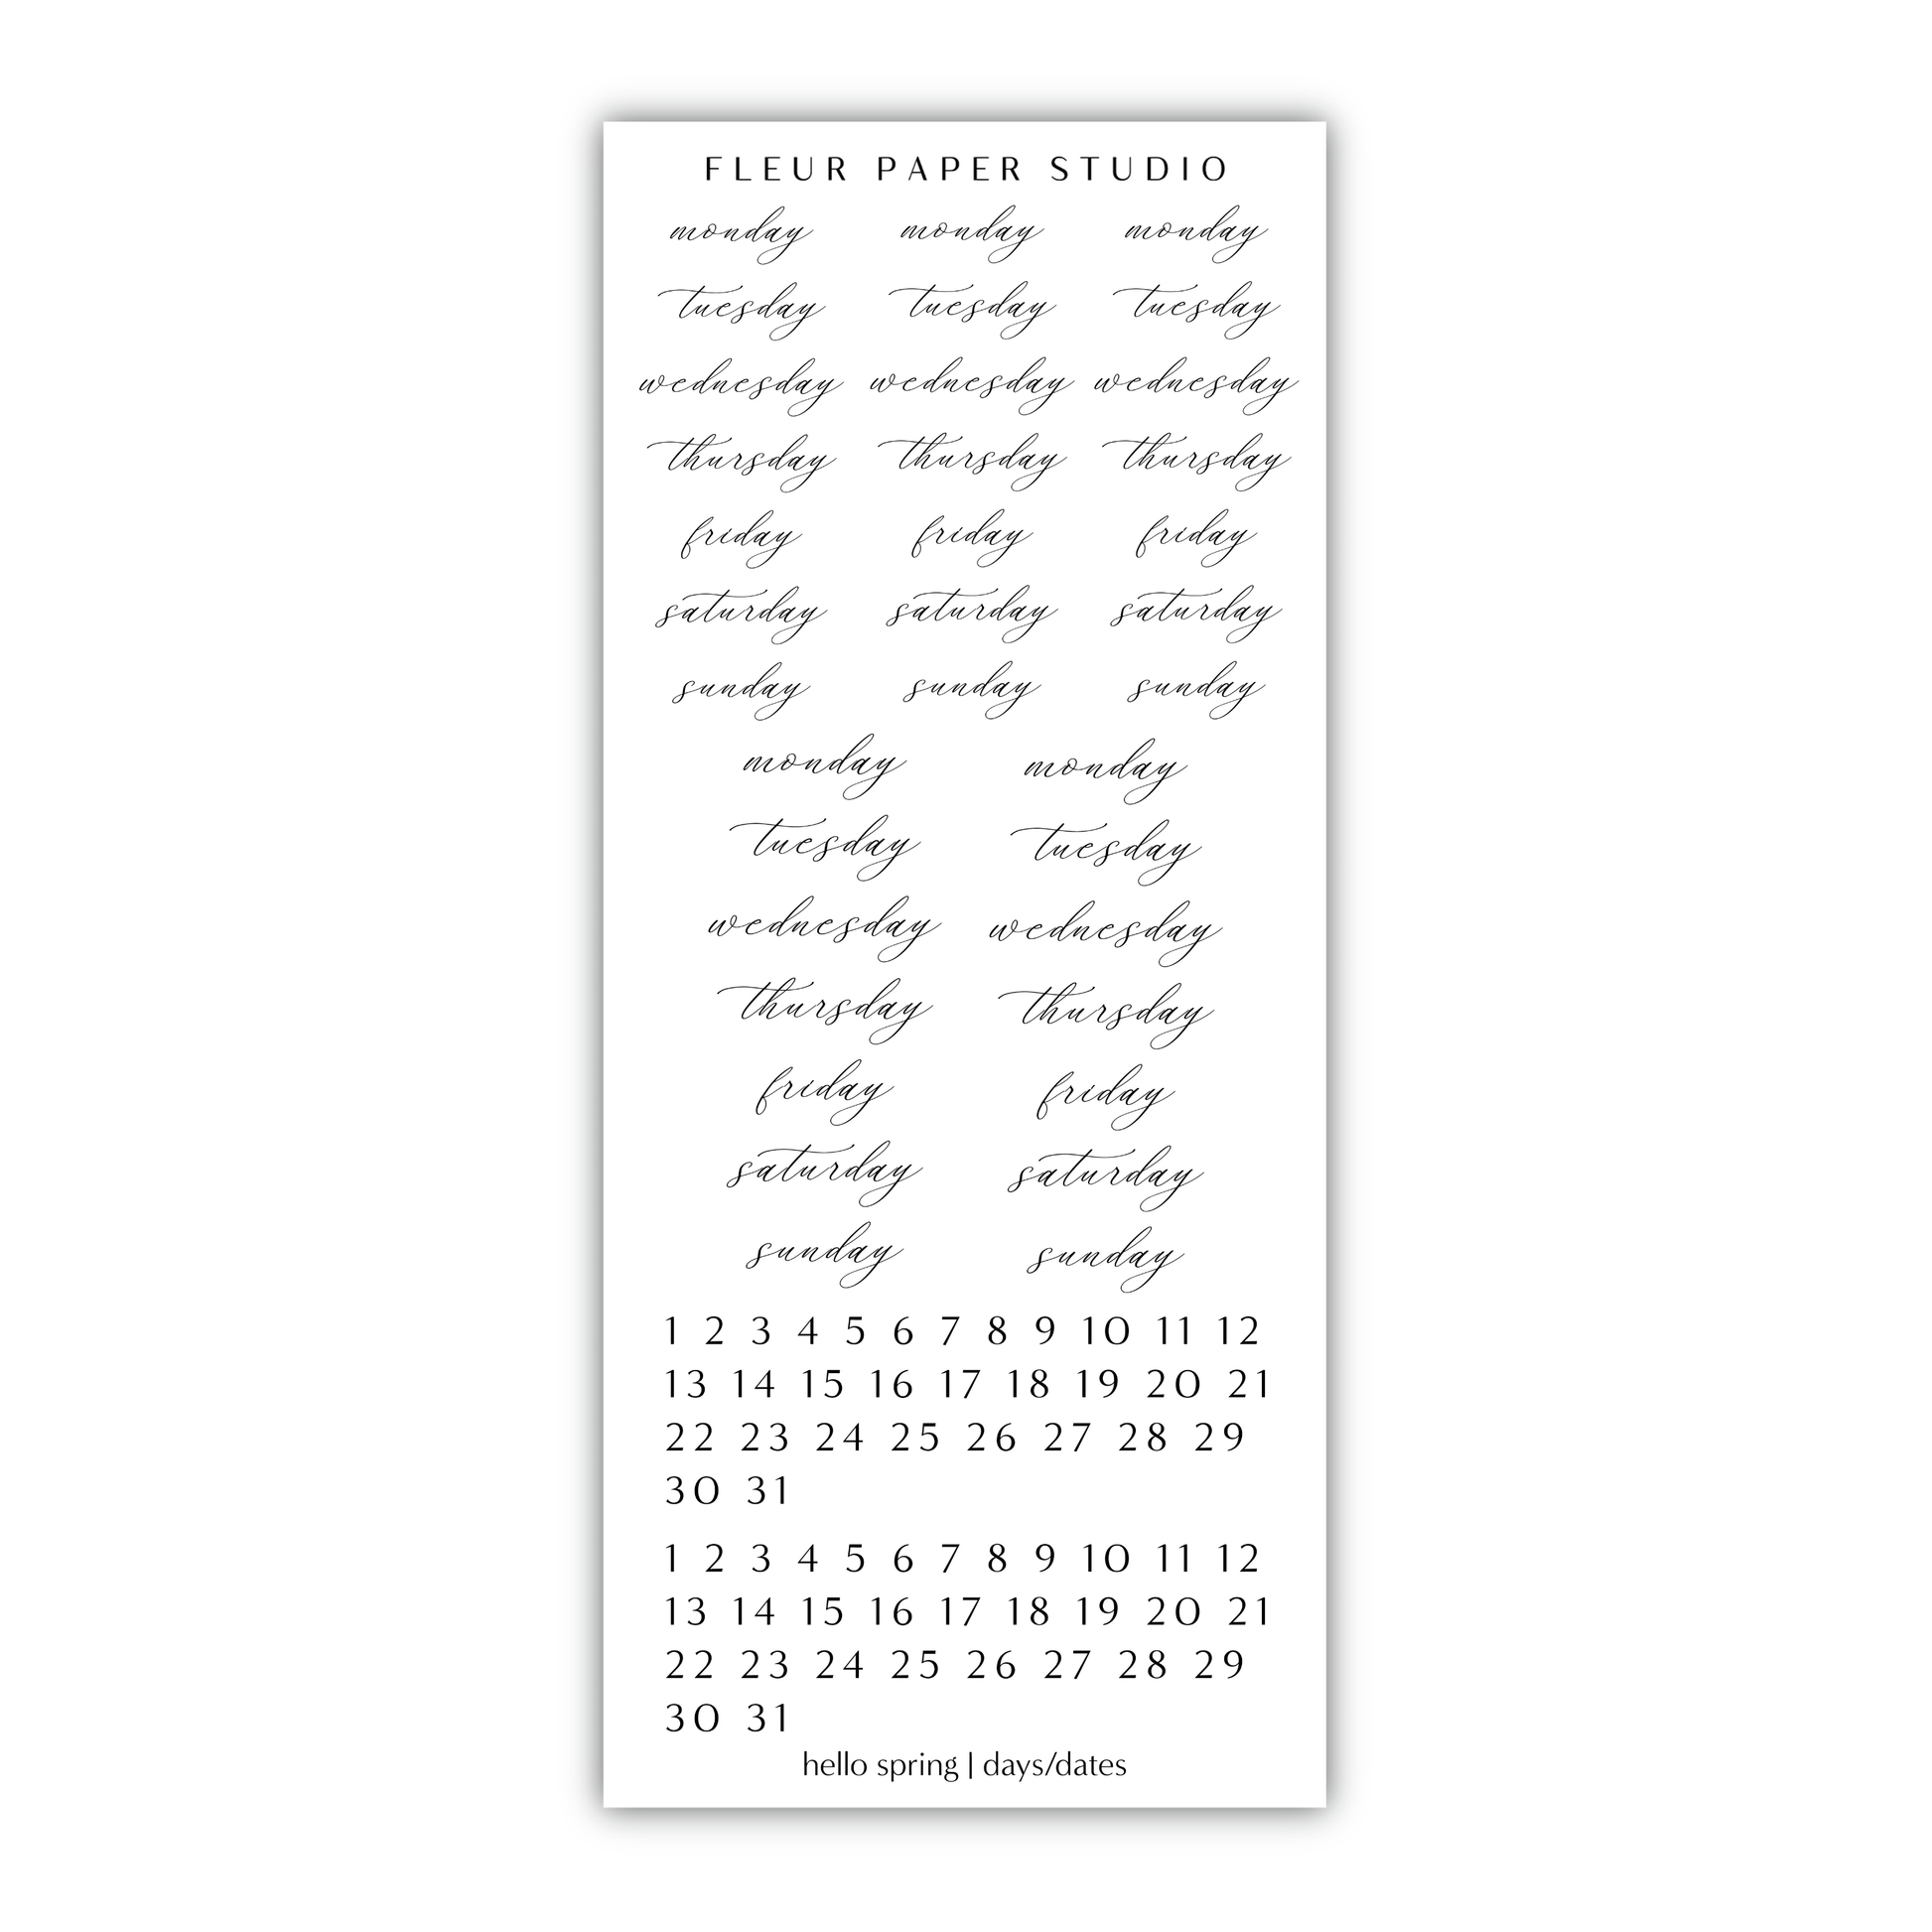 FLEUR PAPER STUDIO
monday monday monday
tuesday tuesday tuesday
wednesday wednesday wednesday
thursday thursday thursday
friday friday friday
saturday saturday saturday
sunday sunday sunday
monday monday
tuesday tuesday
wednesday wednesday
thursday thursday
friday friday
saturday saturday
sunday sunday
1 2 3 4 5 6 7 8 9 10 11 12
13 14 15 16 17 18 19 20 21
22 23 24 25 26 27 28 29
30 31
1 2 3 4 5 6 7 8 9 10 11 12
13 14 15 16 17 18 19 20 21
22 23 24 25 26 27 28 29
30 31
hello spring | days/dates